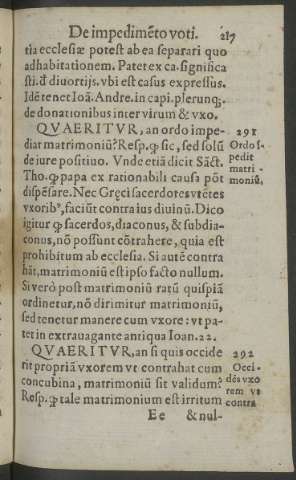 De impedimẽto voti. 217
tia ecclesiæ potest ab ea separari quo
ad habitationem. Patet ex ca. significa
sti. đ diuortijs. vbi est casus expressus.
Idẽ tenet Ioã. Andre. in capi. plerunq;.
de donationibus inter virum & vxo.
QVAERITVR, an ordo impe-
diat matrimoniũ? Resp. ꝙ sic, sed solũ
de iure positiuo. Vnde etiã dicit Sãct.
Tho. ꝙ papa ex rationabili causa põt
dispẽsare. Nec Gręci sacerdotes vtẽtes
vxoribꝰ, faciũt contra ius diuinũ. Dico
igitur ꝙ sacerdos, diaconus, & subdia-
conus, nõ possunt cõtrahere, quia est
prohibitum ab ecclesia. Si autẽ contra
hãt, matrimoniũ est ipso facto nullum.
Si verò post matrimoniũ ratũ quispiã
ordinetur, nõ dirimitur matrimoniũ,
sed tenetur manere cum vxore: vt pa-
tet in extrauagante antiqua Ioan. 22.
QVAERITVR, an si quis occide
rit propriã vxorem vt contrahat cum
concubina, matrimoniũ sit validum?
Resp. ꝙ tale matrimonium est irritum
Ee & nul-
291
Ordo ĩ-
pedit
matri-
moniũ.
292
Occi-
dẽs vxo
rem vt
contra